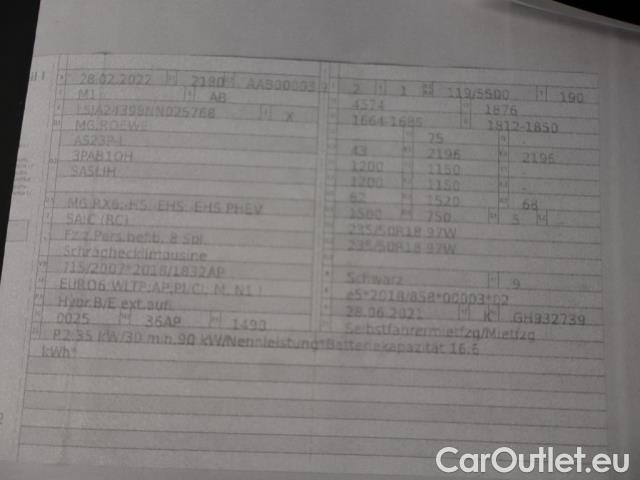 28.02.2022 2180 AAB00003
M1 AB
LSJA24399NN025768 X
MG ROEWE
AS23P-L
3PAB1OH
SA5LIH
MG RX6; -HS; EHS; -EHS PHEV
SAIC (RC)
Fz.z.Pers.bef.b. 8 Spl.
Schräghecklimousine
715/2007*2018/1832AP
EURO6;WLTP;AP;PI/CI; M, N1 I
Hybr.B/E ext.aufl.
0025 36AP 1490
2 1 119/5500 190
4574 1876
1664-1685 1812-1850
75
43 2196 2196
1200 1150
1200 1150
62 1520 68
1500 750 5
235/50R18 97W
235/50R18 97W
Schwarz 9
e5*2018/858*00003*02
28.06.2021 K GH932739
Selbstfahrermietfzg/Mietfzg
P.2:35 kW/30 min,90 kW/Nennleistung*Batteriekapazität 16,6
kWh*
CarOutlet.eu